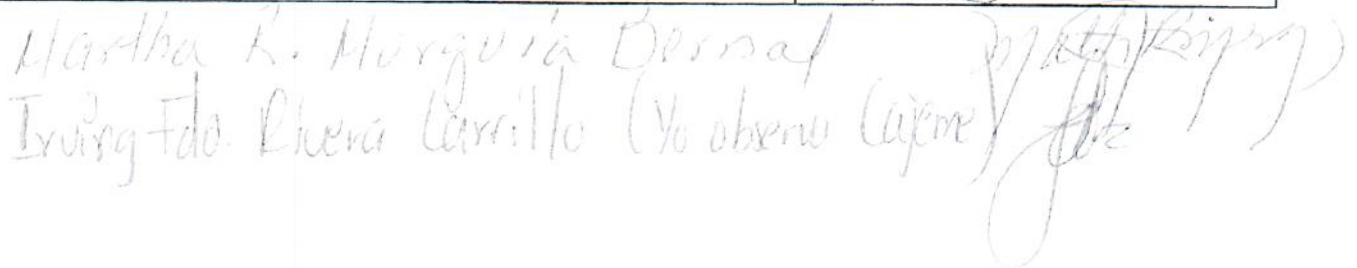 Martha R. Murguía Bernal
Irving Fdo. Rivera Carrillo (Yo observo Cajeme)